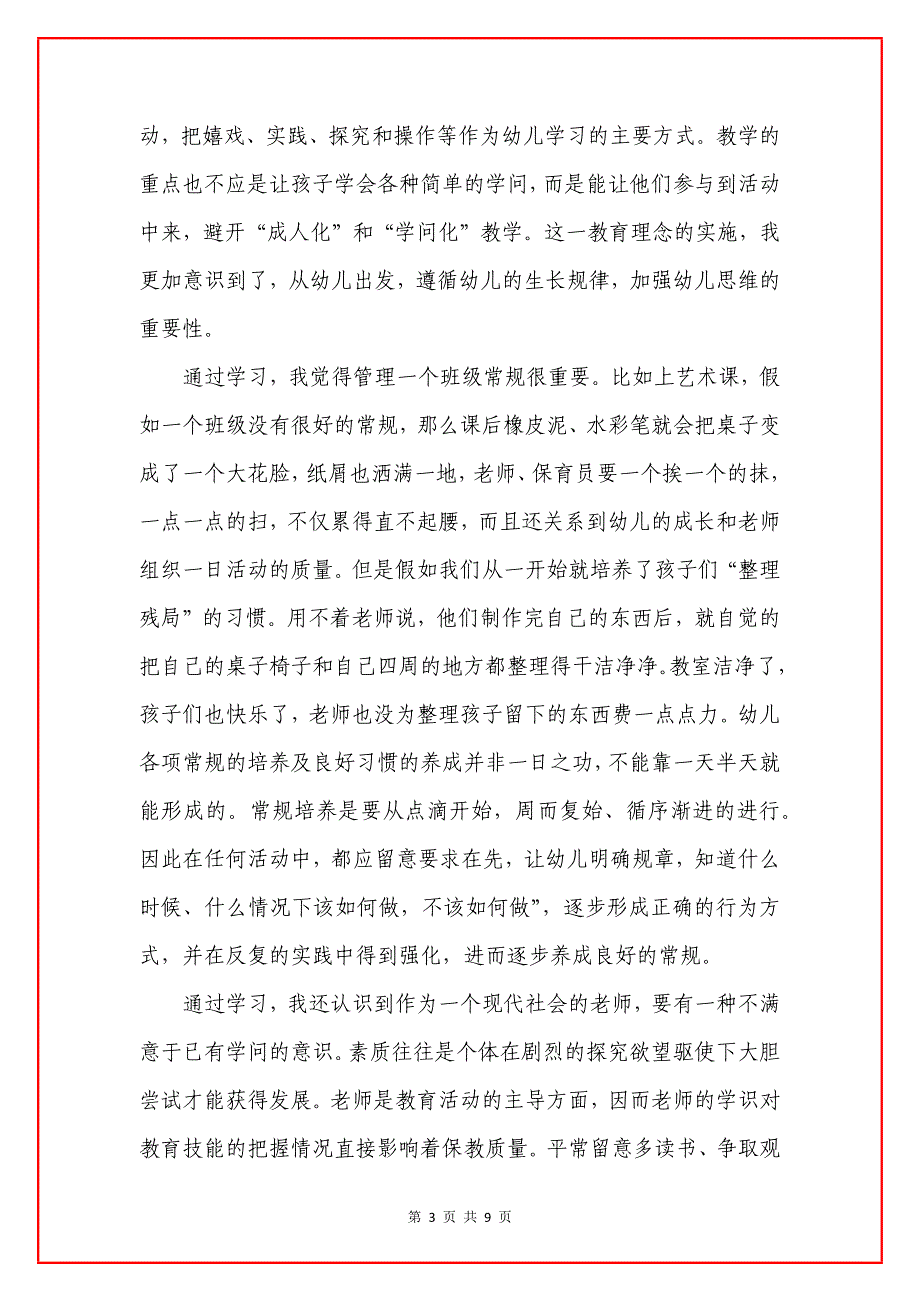 动，把嬉戏、实践、探究和操作等作为幼儿学习的主要方式。教学的
重点也不应是让孩子学会各种简单的学问，而是能让他们参与到活动
中来，避开“成人化”和“学问化”教学。这一教育理念的实施，我
更加意识到了，从幼儿出发，遵循幼儿的生长规律，加强幼儿思维的
重要性。
通过学习，我觉得管理一个班级常规很重要。比如上艺术课，假
如一个班级没有很好的常规，那么课后橡皮泥、水彩笔就会把桌子变
成了一个大花脸，纸屑也洒满一地，老师、保育员要一个挨一个的抹，
一点一点的扫，不仅累得直不起腰，而且还关系到幼儿的成长和老师
组织一日活动的质量。但是假如我们从一开始就培养了孩子们“整理
残局”的习惯。用不着老师说，他们制作完自己的东西后，就自觉的
把自己的桌子椅子和自己四周的地方都整理得干洁净净。教室洁净了，
孩子们也快乐了，老师也没为整理孩子留下的东西费一点点力。幼儿
各项常规的培养及良好习惯的养成并非一日之功，不能靠一天半天就
能形成的。常规培养是要从点滴开始，周而复始、循序渐进的进行。
因此在任何活动中，都应留意要求在先，让幼儿明确规章，知道什么
时候、什么情况下该如何做，不该如何做”，逐步形成正确的行为方
式，并在反复的实践中得到强化，进而逐步养成良好的常规。
通过学习，我还认识到作为一个现代社会的老师，要有一种不满
意于已有学问的意识。素质往往是个体在剧烈的探究欲望驱使下大胆
尝试才能获得发展。老师是教育活动的主导方面，因而老师的学识对
教育技能的把握情况直接影响着保教质量。平常留意多读书、争取观
第 3 页 共 9 页